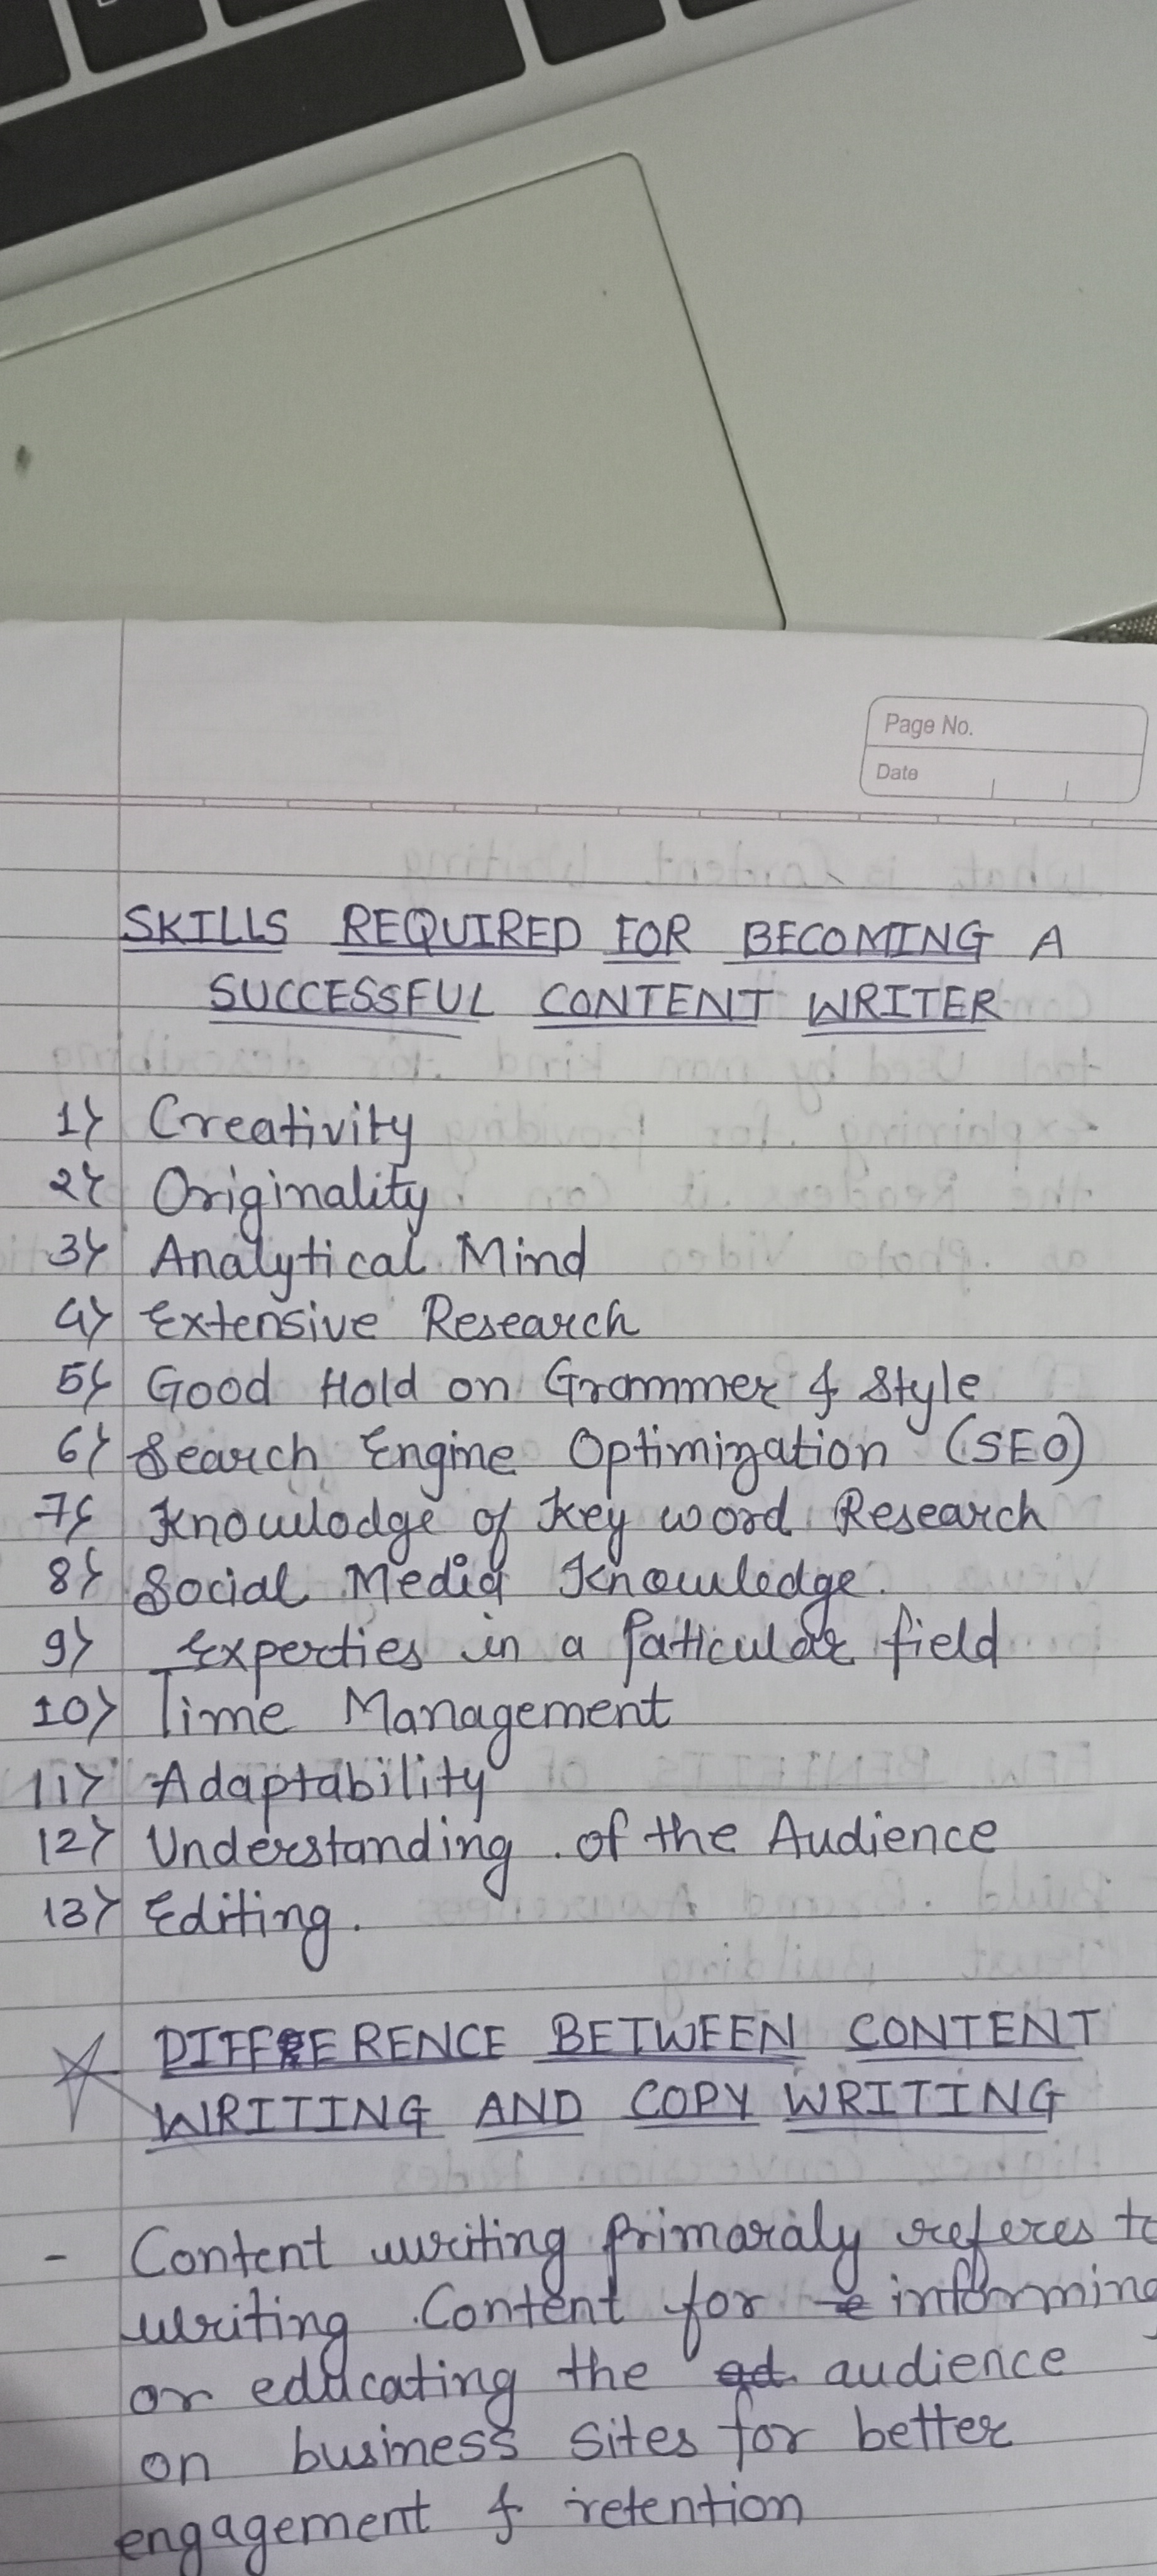 Page No.
Date
SKILLS REQUIRED FOR BECOMING A
SUCCESSFUL CONTENT WRITER
1) Creativity
2) Originality
3) Analytical Mind
4) Extensive Research
5) Good Hold on Grammer & Style
6) Search Engine Optimization (SEO)
7) Knowlodge of Key word Research
8) Social Media Knowledge.
9) Experties in a Paticular field
10) Time Management
11) Adaptability
12) Understanding of the Audience
13) Editing.
DIFFERENCE BETWEEN CONTENT
WRITING AND COPY WRITING
- Content writing Primaraly referes to
writing Content for informing
or educating the audience
on business Sites for better
engagement & retention